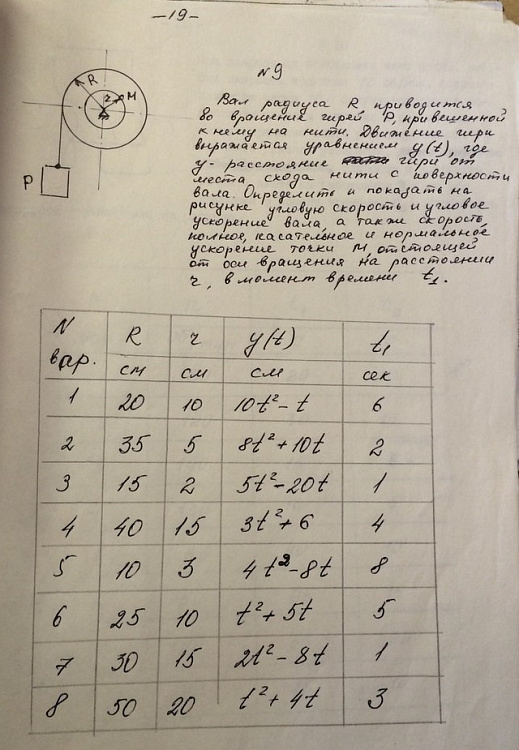 -19-
N9
R
r
M
P
Вал радиуса R приводится
во вращение гирей P, привешенной
к нему на нити. Движение гири
выражается уравнением y(t), где
y- расстояние гири от
места схода нити с поверхности
вала. Определить и показать на
рисунке угловую скорость и угловое
ускорение вала, а также скорость,
полное, касательное и нормальное
ускорение точки M, отстоящей
от оси вращения на расстоянии
r, в момент времени t₁.
N вар. R см r см y(t) см t₁ сек
1 20 10 10t²-t 6
2 35 5 8t²+10t 2
3 15 2 5t²-20t 1
4 40 15 3t²+6 4
5 10 3 4t²-8t 8
6 25 10 t²+5t 5
7 30 15 2t²-8t 1
8 50 20 t²+4t 3